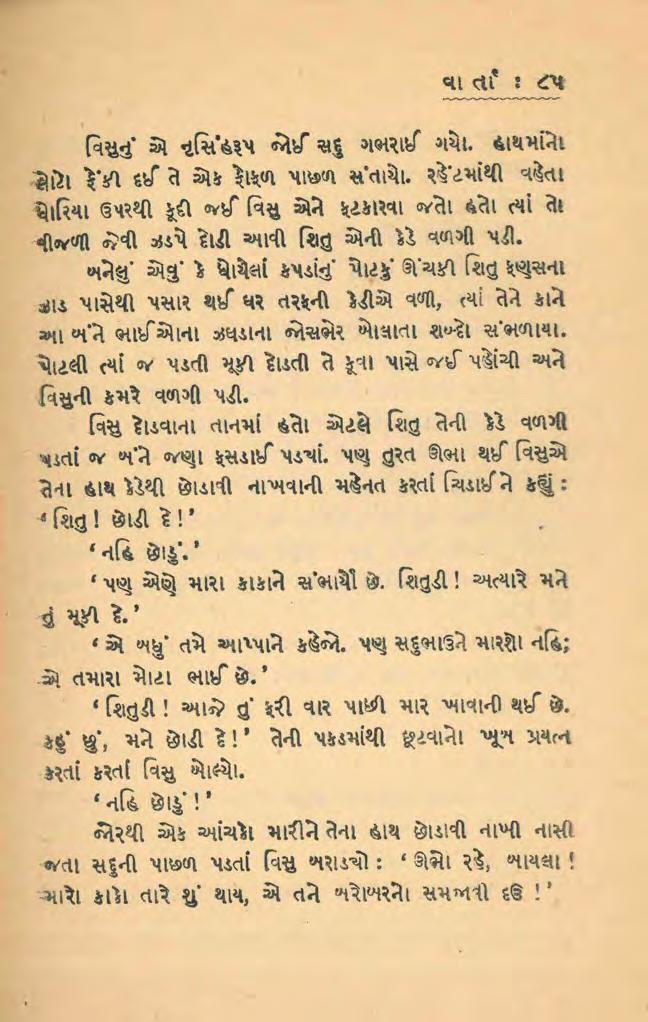 વા ર્તા : ૮૫
વિસુનું એ નૃસિંહરૂપ જોઈ સદુ ગભરાઈ ગયો. હાથમાંનો
લોટો ફેંકી દઈ તે એક ફોફળ પાછળ સંતાયો. રહેંટમાંથી વહેતા
ધોરિયા ઉપરથી કૂદી જઈ વિસુ એને ફટકારવા જતો હતો ત્યાં તો
વીજળી જેવી ઝડપે દોડી આવી શિતુ એની કેડે વળગી પડી.
બનેલું એવું કે ધોયેલાં કપડાંનું પોટકું ઊંચકી શિતુ ફણસના
ઝાડ પાસેથી પસાર થઈ ઘર તરફની કેડીએ વળી, ત્યાં તેને કાને
આ બંને ભાઈઓના ઝઘડાના જોસભેર બોલાતા શબ્દો સંભળાયા.
પોટલી ત્યાં જ પડતી મૂકી દોડતી તે કૂવા પાસે જઈ પહોંચી અને
વિસુની કમરે વળગી પડી.
વિસુ દોડવાના તાનમાં હતો એટલે શિતુ તેની કેડે વળગી
પડતાં જ બંને જણા ફસડાઈ પડ્યાં. પણ તુરત ઊભા થઈ વિસુએ
તેના હાથ કેડેથી છોડાવી નાખવાની મહેનત કરતાં ચિડાઈને કહ્યું :
‘ શિતુ ! છોડી દે !’
‘ નહિ છોડું.’
‘ પણ એણે મારા કાકાને સંભાર્યા છે. શિતુડી ! અત્યારે મને
તું મૂકી દે.’
‘ એ બધું તમે આપ્પાને કહેજો. પણ સદુભાઉને મારશો નહિ;
એ તમારા મોટા ભાઈ છે.’
‘ શિતુડી ! આજે તું ફરી વાર પાછી માર ખાવાની થઈ છે.
કહું છું, મને છોડી દે !’ તેની પકડમાંથી છૂટવાનો ખૂબ પ્રયત્ન
કરતાં કરતાં વિસુ બોલ્યો.
‘ નહિ છોડું !’
જોરથી એક આંચકો મારીને તેના હાથ છોડાવી નાખી નાસી
જતા સદુની પાછળ પડતાં વિસુ બરાડ્યો : ‘ ઊભો રહે, બાયલા !
મારો કાકો તારે શું થાય, એ તને બરોબરનો સમજાવી દઉં !’